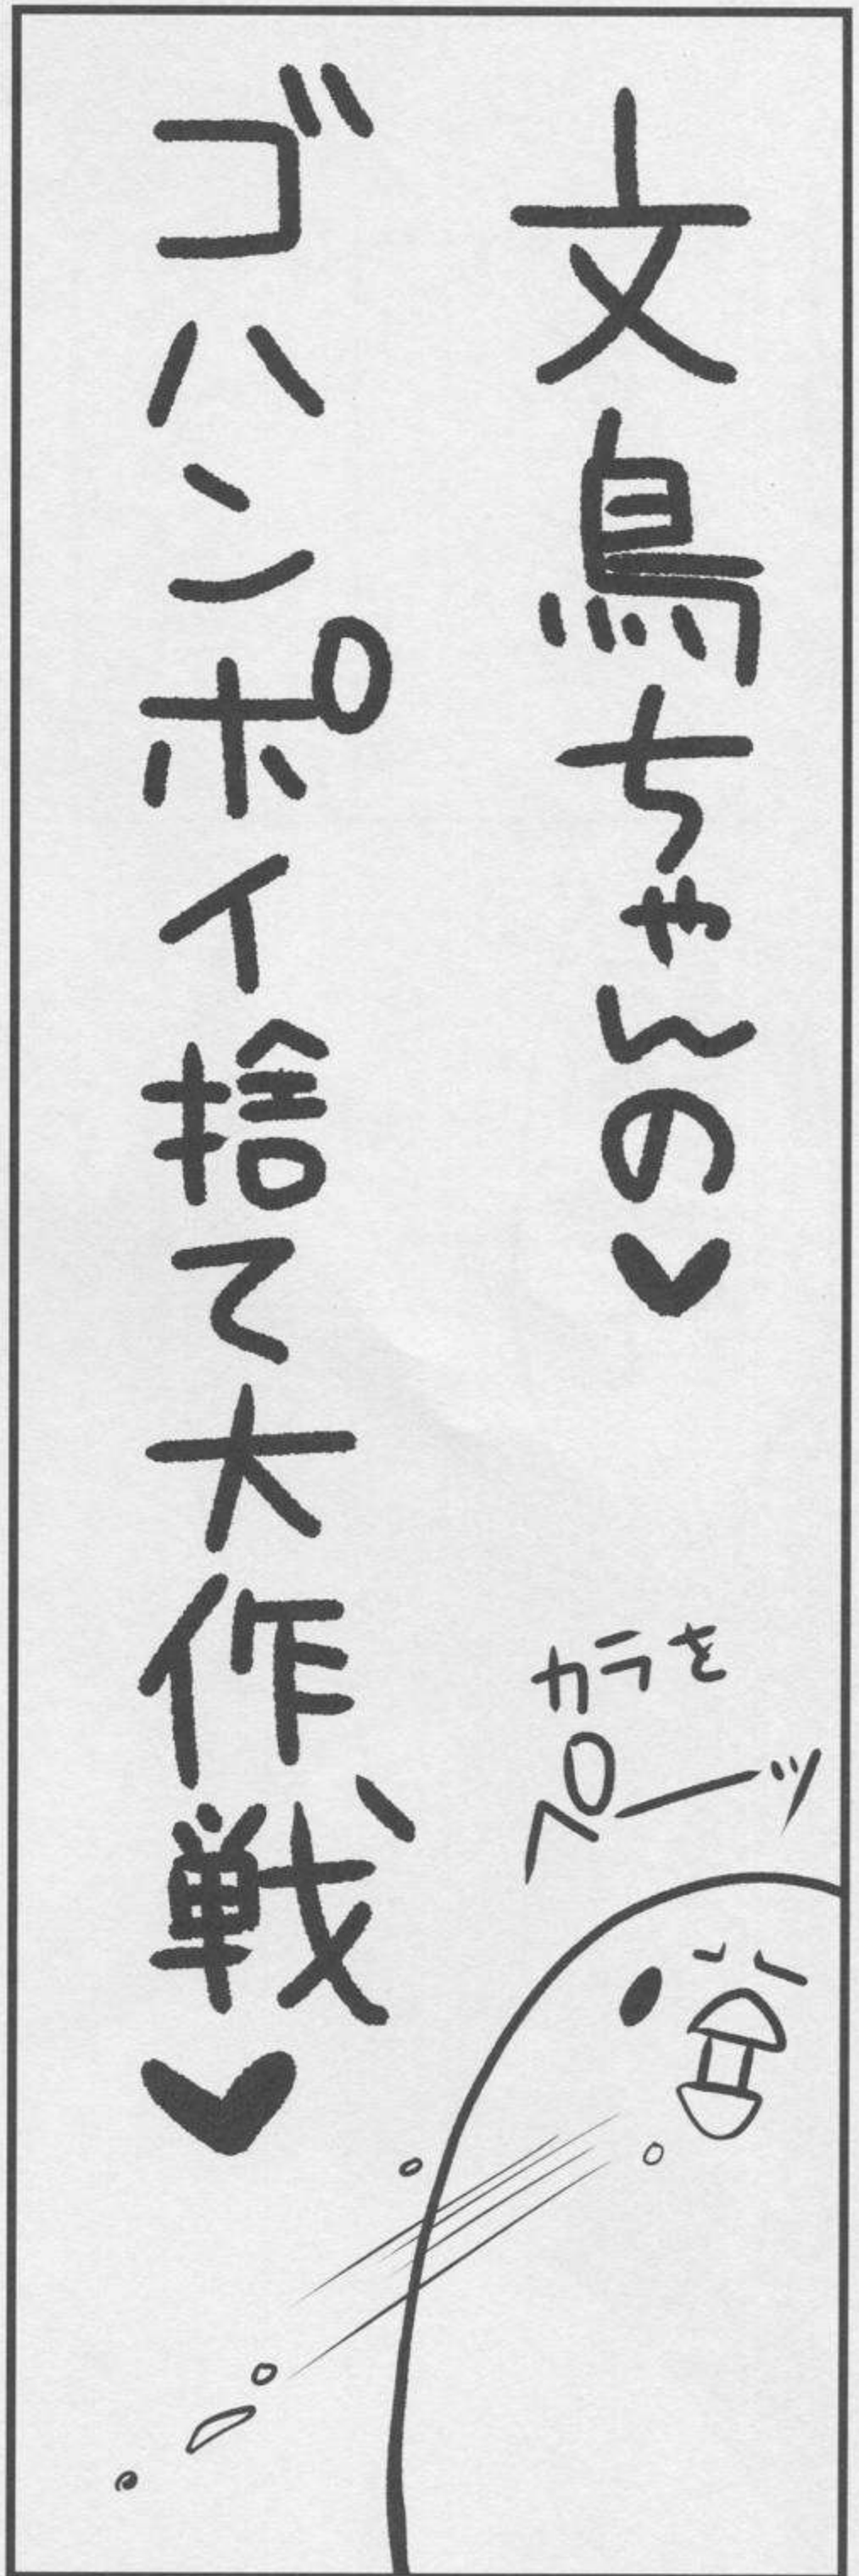 文鳥ちゃんの♥
ゴハンポイ捨て大作戦♥
カラを
ペーッ